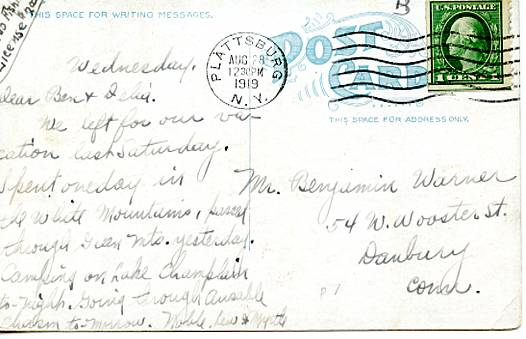 THIS SPACE FOR WRITING MESSAGES.
B
U.S. POSTAGE
PLATTSBURG
AUG 28
1230PM
1919
N.Y.
POST
CARD
THIS SPACE FOR ADDRESS ONLY.
Wednesday.
Dear Ben &
We left for our va-
cation last Saturday.
Spent one day in
the White Mountains, passed
through Green Mts. yesterday.
Camping on Lake Champlain
to-night. Going through Ausable
Chasm to-morrow. Noble, Lew & Myrtle
Mr. Benjamin Warner
54 W. Wooster St.
Danbury
Conn.